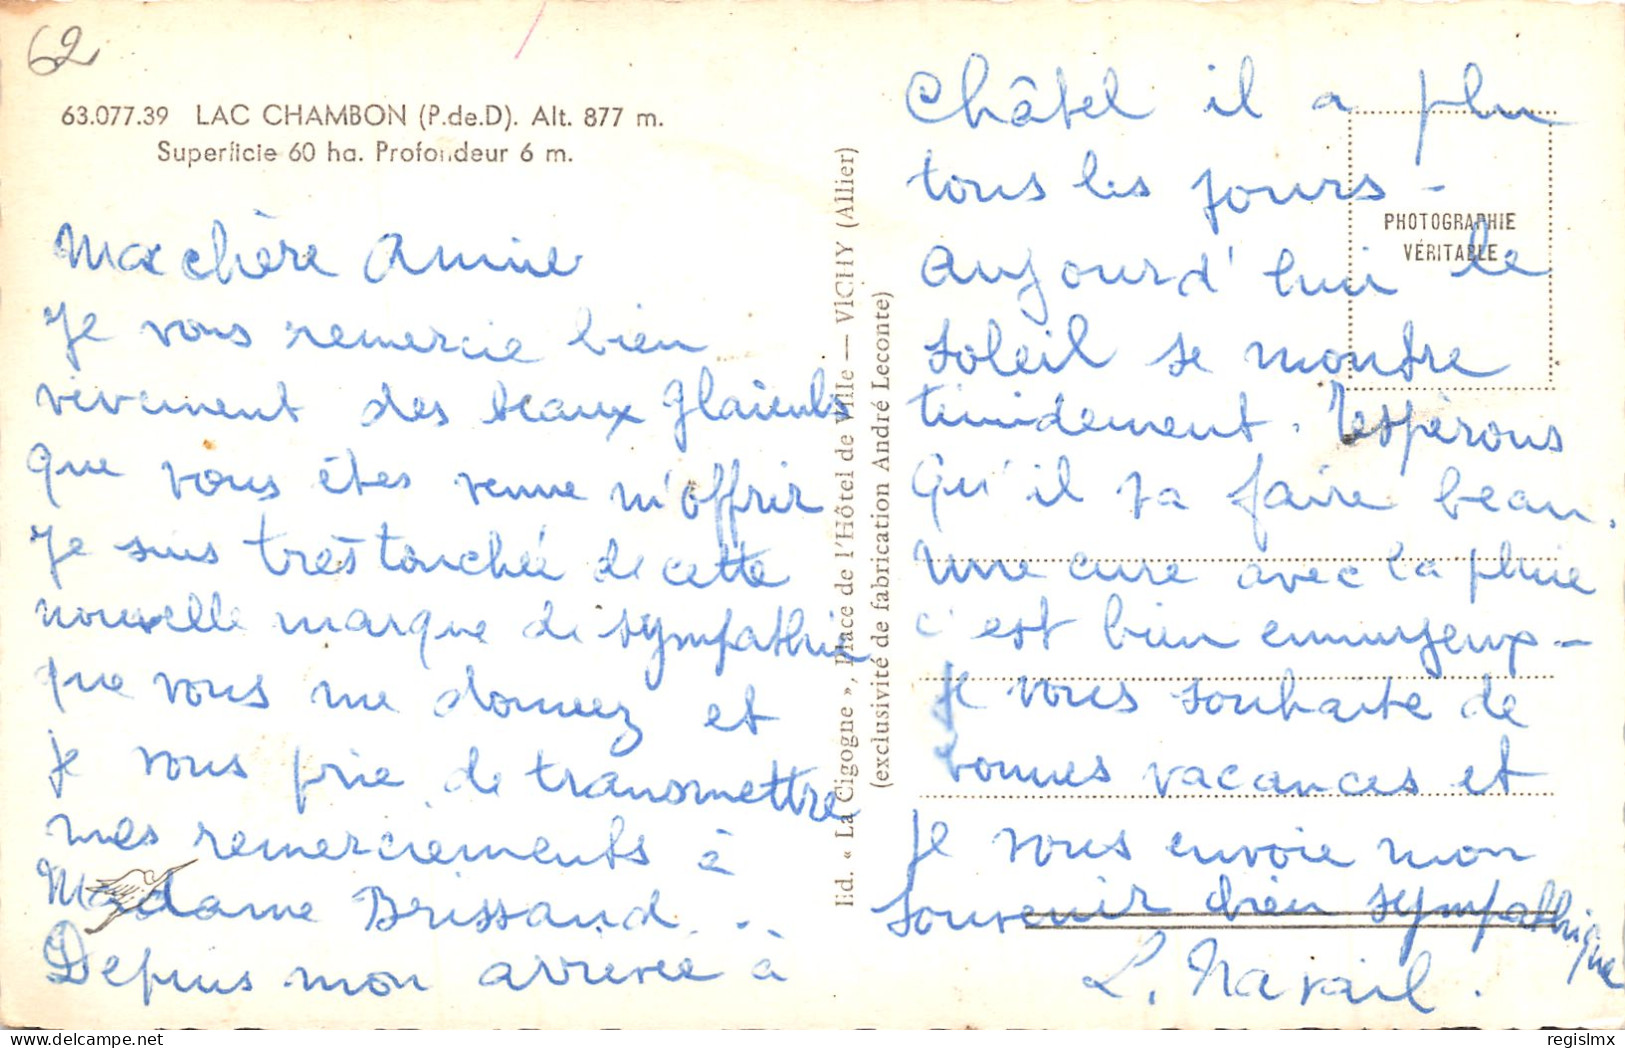 62
63.077.39 LAC CHAMBON (P.de.D). Alt. 877 m.
Superficie 60 ha. Profondeur 6 m.
Ma chère Annie
Je vous remercie bien
vivement des beaux glaieuls
que vous êtes venue m'offrir
Je suis très touchée de cette
nouvelle marque de sympathie
que vous me donnez et
je vous prie de transmettre
mes remerciements à
Madame Brissaud.
Depuis mon arrivée à
Ed. « La Cigogne », Place de l'Hôtel de Ville — VICHY (Allier)
(exclusivité de fabrication André Leconte)
PHOTOGRAPHIE
VÉRITABLE
Châtel il a plu
tous les jours -
Aujourd'hui le
soleil se montre
timidement. Espérons
qu'il va faire beau.
Une cure avec la pluie
c'est bien ennuyeux -
Je vous souhaite de
bonnes vacances et
je vous envoie mon
souvenir bien sympathique
L.
regislmx